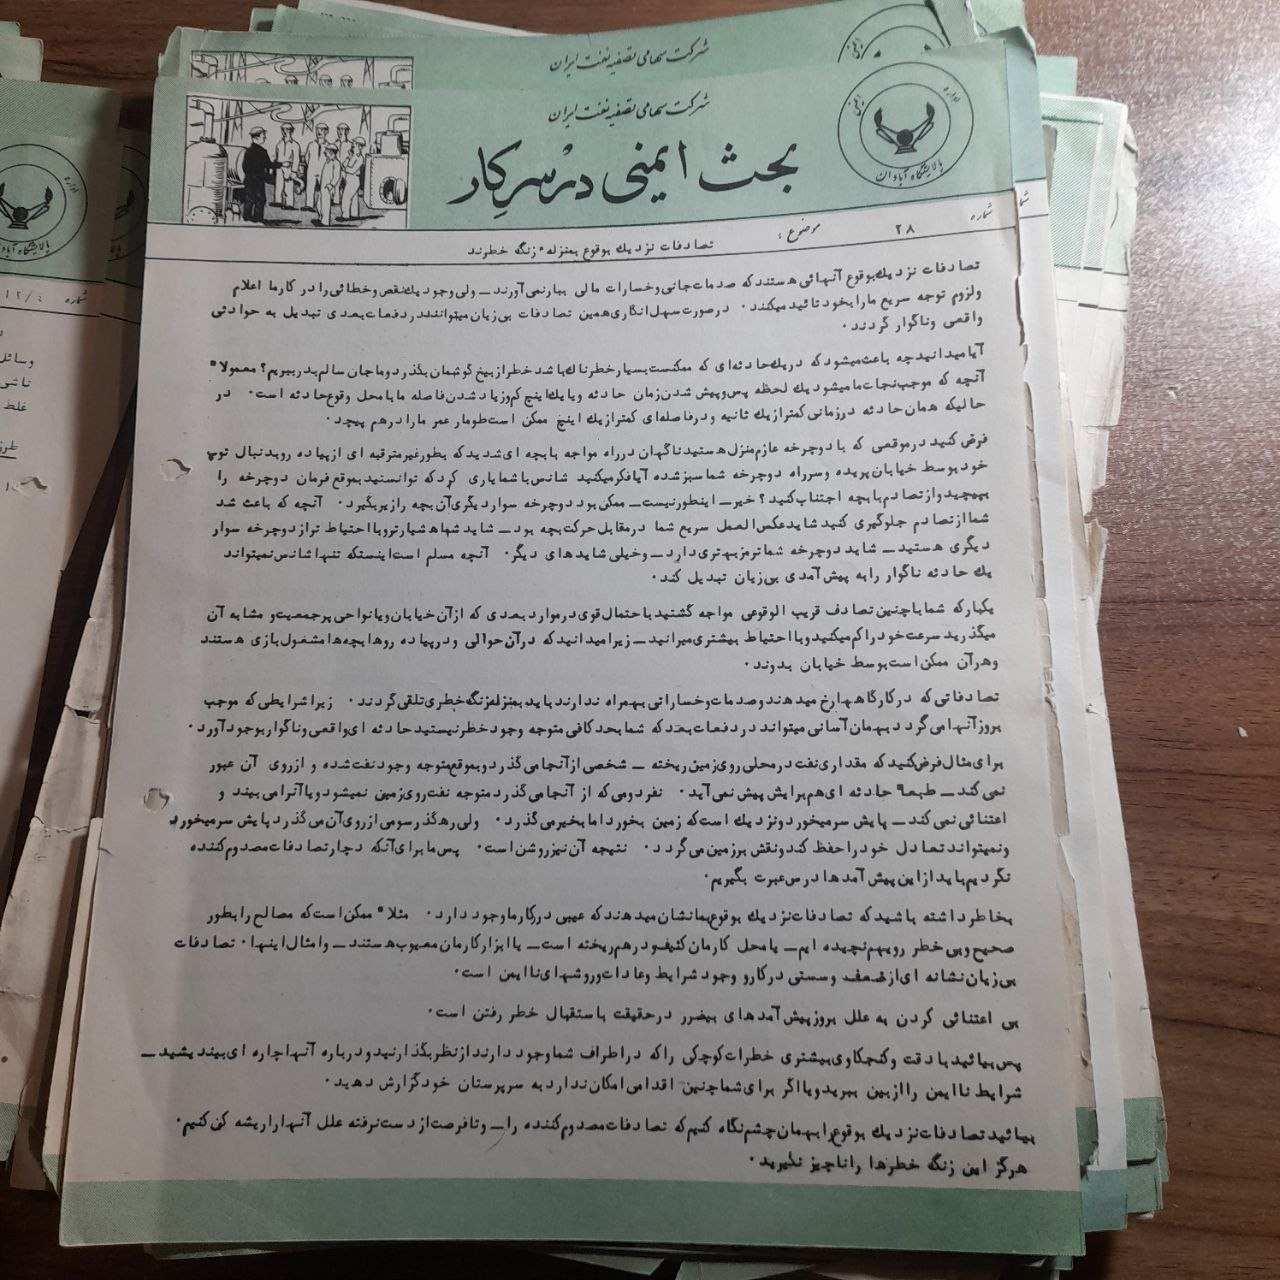 شرکت سهامی تصفیه نفت ایران
شرکت سهامی تصفیه نفت ایران
اداره ایمنی
پالایشگاه آبادان
بحث ایمنی در سر کار
شماره ۲۸ موضوع : تصادفات نزدیك بوقوع بمنزلهٔ زنگ خطرند
تصادفات نزدیك بوقوع آنهائی هستند که صدمات جانی و خسارات مالی ببار نمی آورند ـ ولی وجود یك نقص و خطائی را در کار ما اعلام
و لزوم توجه سریع ما را بخود تائید میکنند . در صورت سهل انگاری همین تصادفات بی زیان میتوانند در دفعات بعدی تبدیل به حوادثی
واقعی و ناگوار گردند .
آیا میدانید چه باعث میشود که در یك حادثه ای که ممکنست بسیار خطرناك باشد خطر از بیخ گوشمان بگذرد و ما جان سالم بدر ببریم؟ معمولا"
آنچه که موجب نجات ما میشود یك لحظه پس و پیش شدن زمان حادثه و یا یك اینچ کم و زیاد شدن فاصله ما با محل وقوع حادثه است . در
حالیکه همان حادثه در زمانی کمتر از یك ثانیه و در فاصله ای کمتر از یك اینچ ممکن است طومار عمر ما را در هم پیچد .
فرض کنید در موقعی که با دوچرخه عازم منزل هستید ناگهان در راه مواجه با بچه ای شدید که بطور غیر مترقبه ای از پیاده رو بدنبال توپ
خود بوسط خیابان پریده و سر راه دوچرخه شما سبز شده آیا فکر میکنید شانس با شما یاری کرد که توانستید بموقع فرمان دوچرخه را
بپیچید و از تصادم با بچه اجتناب کنید ؟ خیر ـ اینطور نیست ـ ممکن بود دوچرخه سوار دیگری آن بچه را زیر بگیرد . آنچه که باعث شد
شما از تصادم جلوگیری کنید شاید عکس العمل سریع شما در مقابل حرکت بچه بود ـ شاید شما هشیارتر و با احتیاط تر از دوچرخه سوار
دیگری هستید ـ شاید دوچرخه شما ترمز بهتری دارد ـ و خیلی شاید های دیگر . آنچه مسلم است اینستکه تنها شانس نمیتواند
یك حادثه ناگوار را به پیش آمدی بی زیان تبدیل کند .
یکبار که شما با چنین تصادف قریب الوقوعی مواجه گشتید با احتمال قوی در موارد بعدی که از آن خیابان و یا نواحی پر جمعیت و مشابه آن
میگذرید سرعت خود را کم میکنید و با احتیاط بیشتری میرانید ـ زیرا میدانید که در آن حوالی و در پیاده روها بچه ها مشغول بازی هستند
و هر آن ممکن است بوسط خیابان بدوند .
تصادفاتی که در کارگاهها رخ میدهند و صدمات و خساراتی بهمراه ندارند باید بمنزله زنگ خطری تلقی گردند . زیرا شرایطی که موجب
بروز آنها می گردد بهمان آسانی میتواند در دفعات بعد که شما بحد کافی متوجه وجود خطر نیستید حادثه ای واقعی و ناگوار بوجود آورد .
برای مثال فرض کنید که مقداری نفت در محلی روی زمین ریخته ـ شخصی از آنجا می گذرد و بموقع متوجه وجود نفت شده و از روی آن عبور
نمی کند ـ طبعا" حادثه ای هم برایش پیش نمی آید . نفر دومی که از آنجا می گذرد متوجه نفت روی زمین نمیشود و یا آنرا می بیند و
اعتنائی نمی کند ـ پایش سر میخورد و نزدیك است که زمین بخورد اما بخیر می گذرد . ولی رهگذر سومی از روی آن می گذرد پایش سر میخورد
و نمیتواند تعادل خود را حفظ کند و نقش بر زمین می گردد . نتیجه آن نیز روشن است . پس ما برای آنکه دچار تصادفات مصدوم کننده
نگردیم باید از این پیش آمدها درس عبرت بگیریم .
بخاطر داشته باشید که تصادفات نزدیك بوقوع بما نشان میدهند که عیبی در کار ما وجود دارد . مثلا" ممکن است که مصالح را بطور
صحیح و بی خطر رویهم نچیده ایم ـ یا محل کارمان کثیف و درهم ریخته است ـ یا ابزار کارمان معیوب هستند ـ و امثال اینها . تصادفات
بی زیان نشانه ای از ضعف و سستی در کار و وجود شرایط و عادات و روشهای ناایمن است .
بی اعتنائی کردن به علل بروز پیش آمدهای بیضرر در حقیقت باستقبال خطر رفتن است .
پس بیائید با دقت و کنجکاوی بیشتری خطرات کوچکی را که در اطراف شما وجود دارند از نظر بگذارنید و درباره آنها چاره ای بیندیشید ـ
شرایط ناایمن را از بین ببرید و یا اگر برای شما چنین اقدامی امکان ندارد به سرپرستان خود گزارش دهید .
بیائید تصادفات نزدیك بوقوع را بهمان چشم نگاه کنیم که تصادفات مصدوم کننده را ـ و تا فرصت از دست نرفته علل آنها را ریشه کن کنیم .
هرگز این زنگ خطرها را ناچیز نگیرید .
شماره ۱۲/٤
وسائل
ناشی
غلط